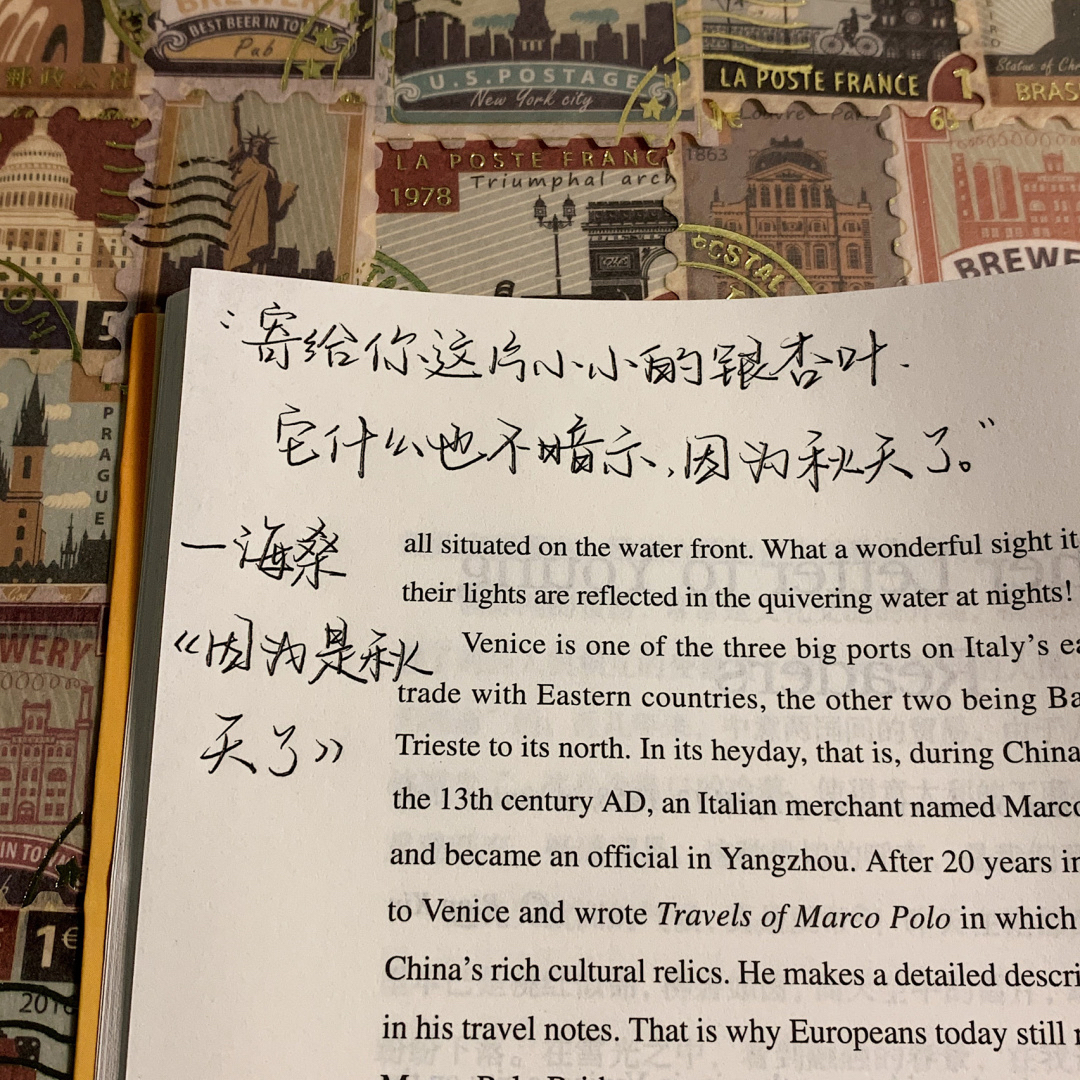 BREWERY
BEST BEER IN TOWN
Pub
U.S.POSTAGE
New York city
LA POSTE FRANCE
1
Statue of Chr
BRAS
LA POSTE FRANC
1978
Triumphal arch
Louvre Par
1863
POSTAL
BREWE
PRAGUE
WERY
IN TOWN
1€
2016
“寄给你这片小小的银杏叶.
它什么也不暗示,因为秋天了。”
—海桑
《因为是秋
天了》
all situated on the water front. What a wonderful sight it
their lights are reflected in the quivering water at nights!
Venice is one of the three big ports on Italy's ea
trade with Eastern countries, the other two being Ba
Trieste to its north. In its heyday, that is, during China
the 13th century AD, an Italian merchant named Marco
and became an official in Yangzhou. After 20 years in
to Venice and wrote Travels of Marco Polo in which
China's rich cultural relics. He makes a detailed descri
in his travel notes. That is why Europeans today still